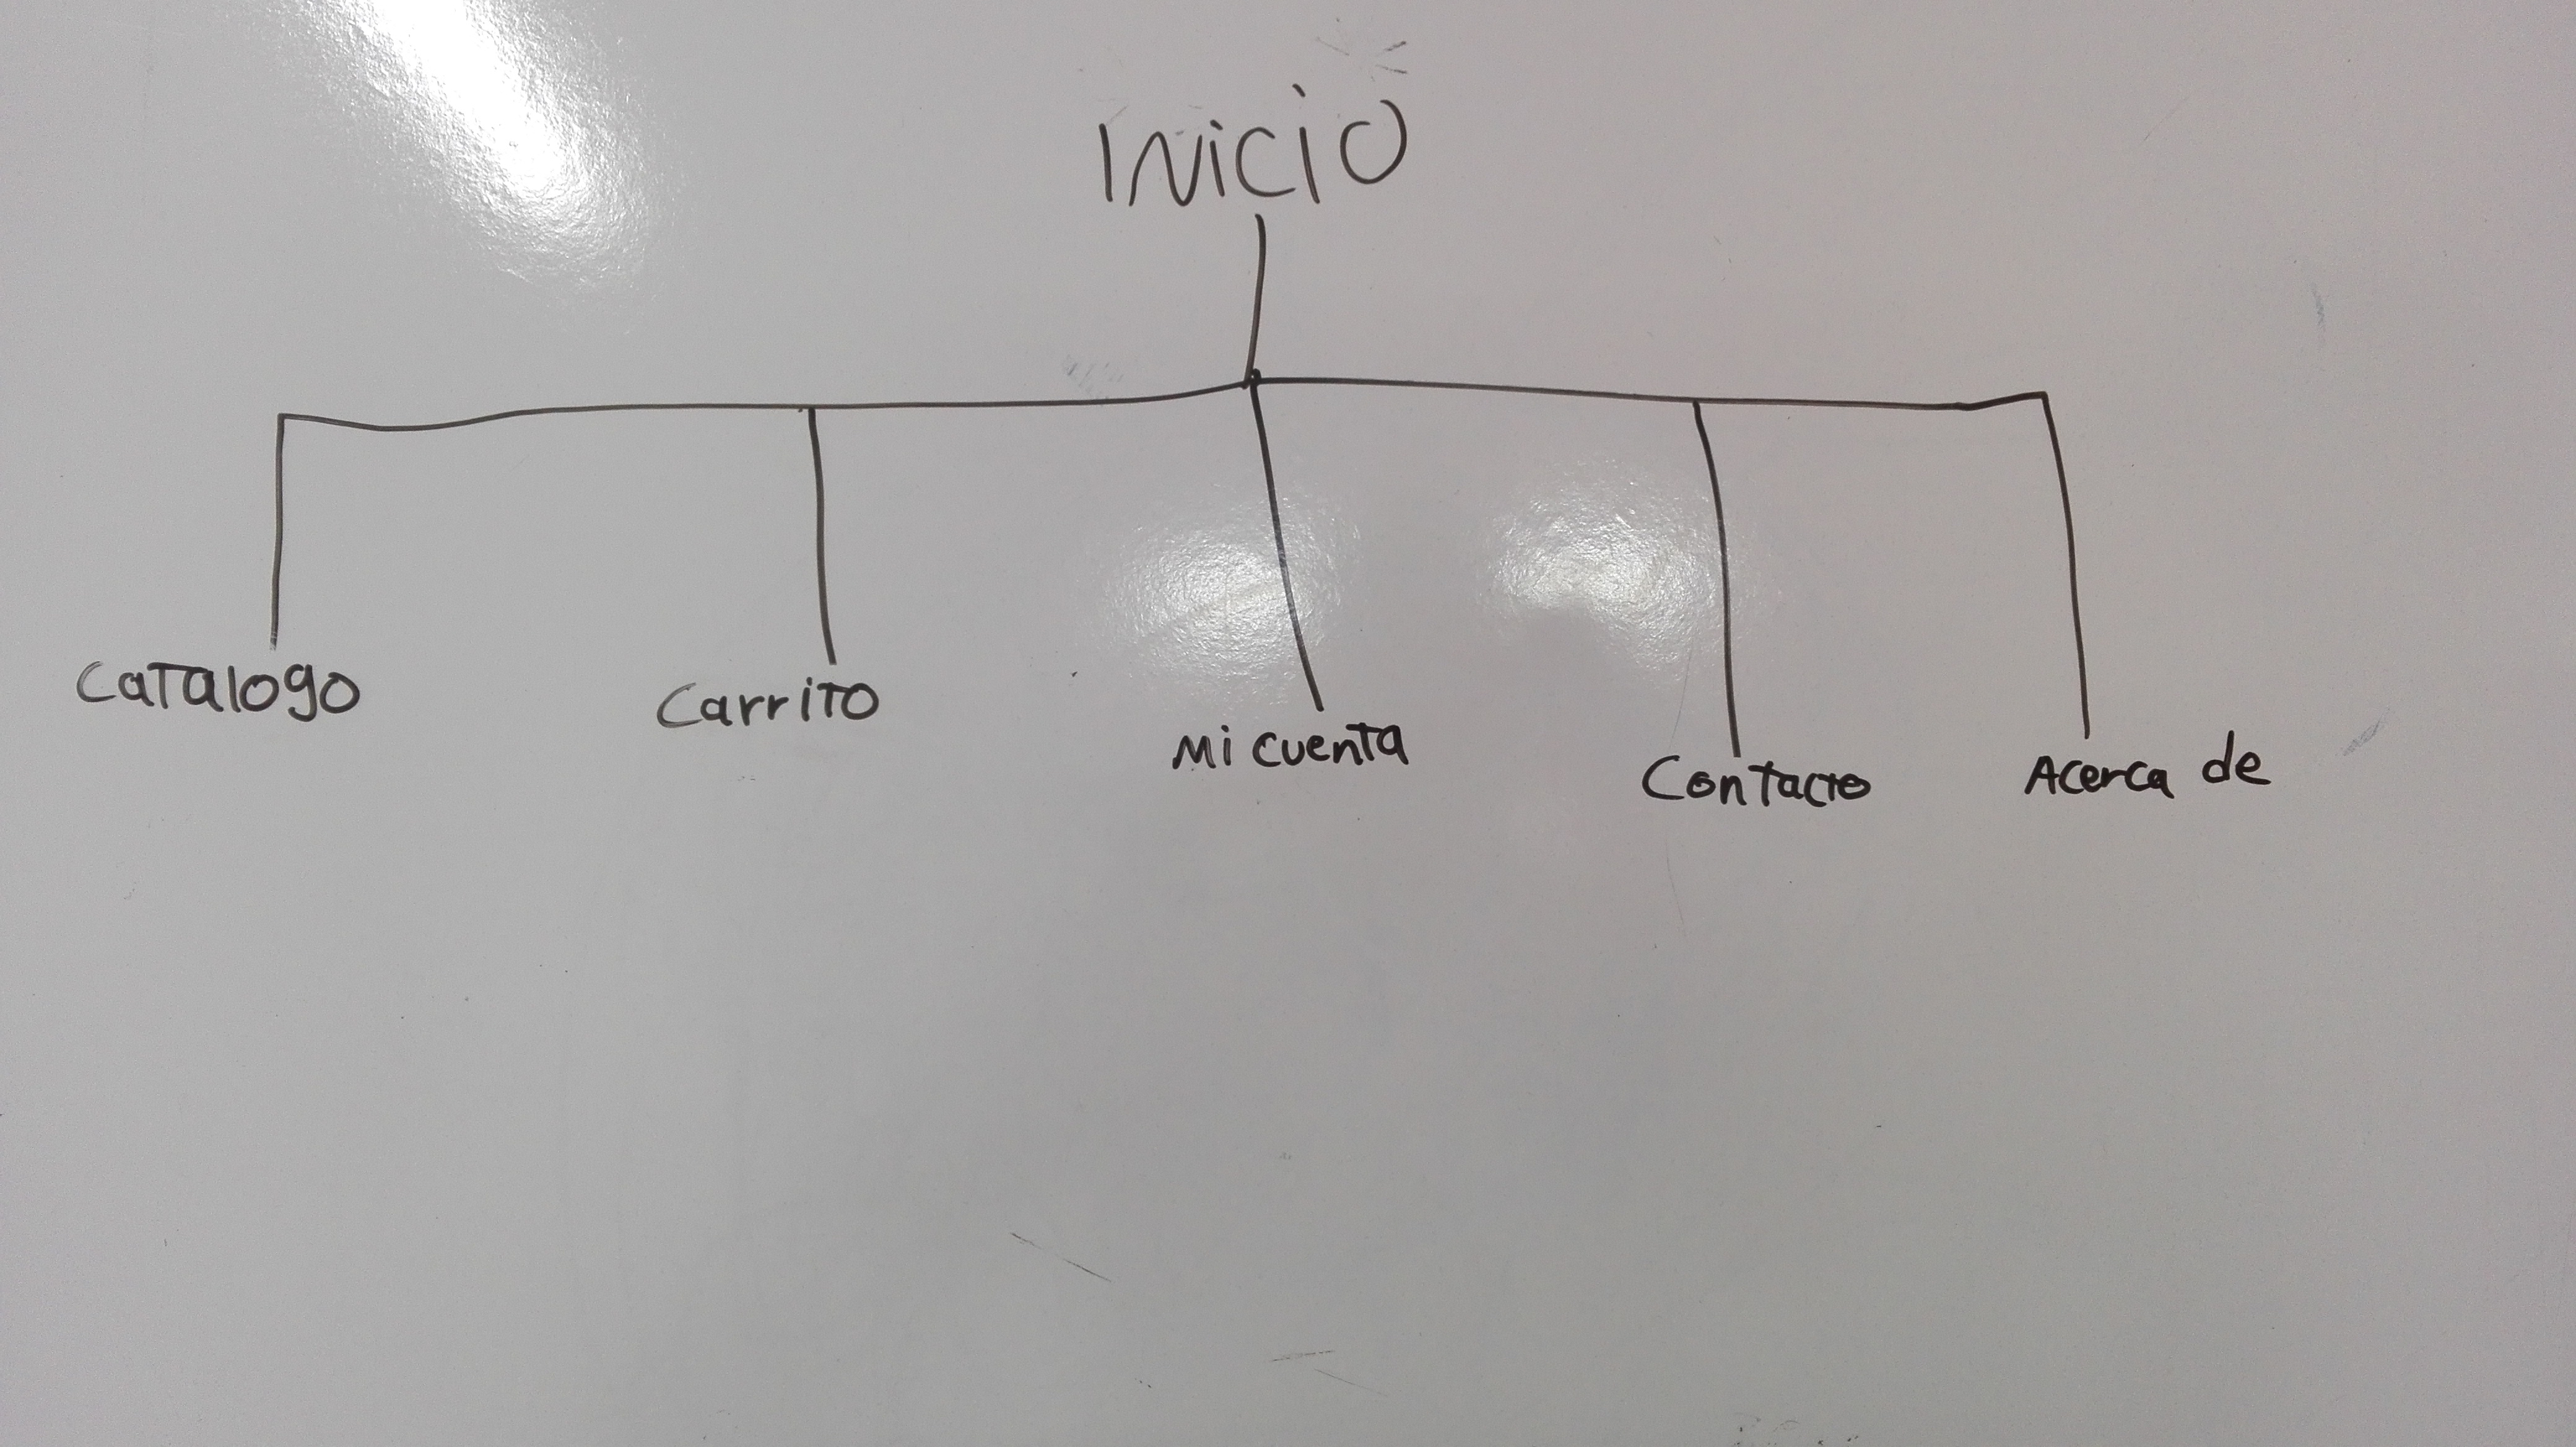 Inicio
Catalogo
Carrito
Mi cuenta
Contacto
Acerca de